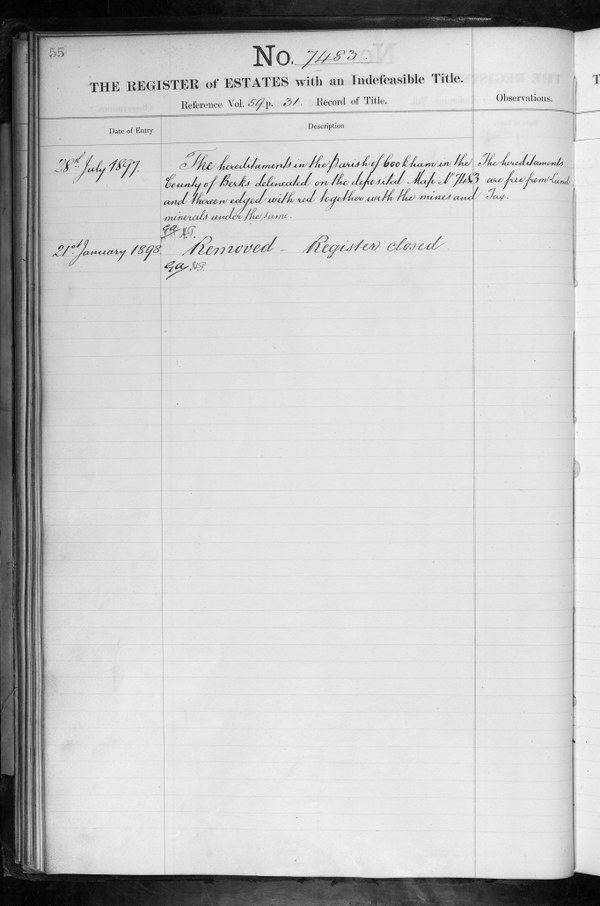 55
No. 7483.
THE REGISTER of ESTATES with an Indefeasible Title.
Reference Vol. 59 p. 31. Record of Title.
Observations.
Date of Entry
Description
28th July 1897.
The hereditaments in the Parish of Cookham in the
County of Berks delineated on the deposited Map No 7483
and thereon edged with red together with the mines and
minerals under the same.
The hereditaments
are free from Land
Tax.
21st January 1898
Removed - Register closed.